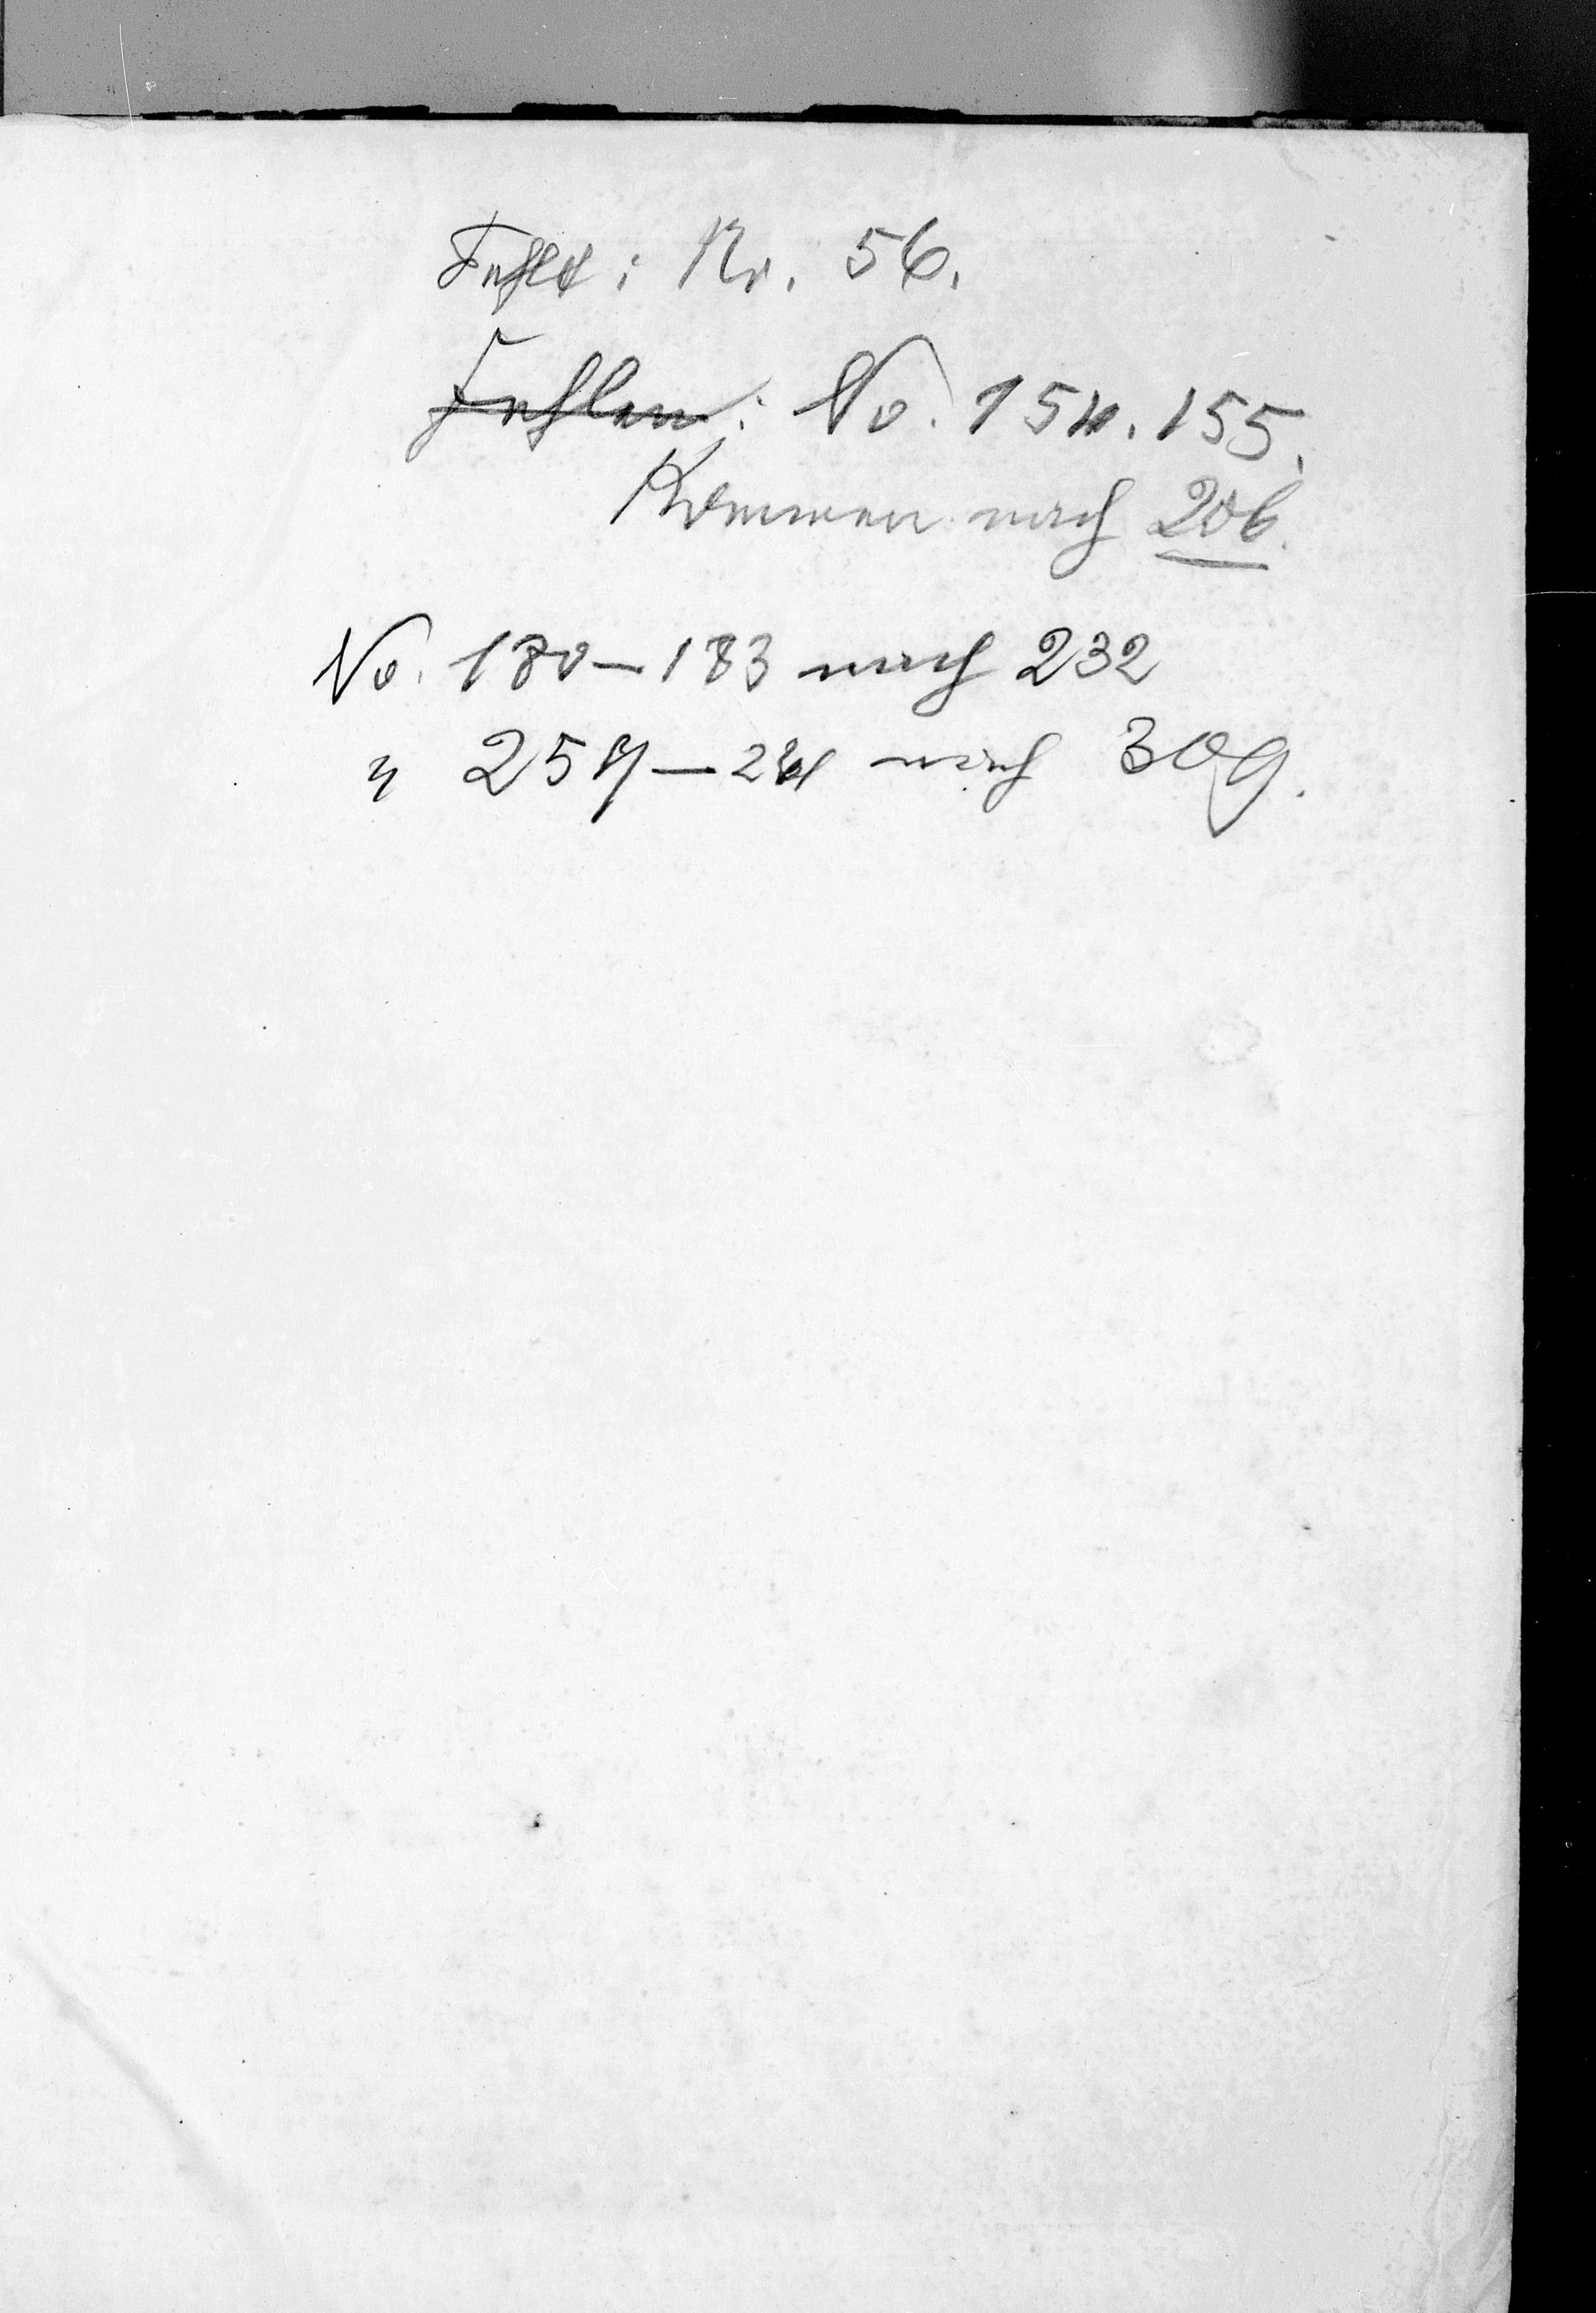 Fehlt: Nr. 56.
Fehlen: No. 154. 155.
Kommen nach 206.
No. 180–183 nach 232
" 257– nach 309.